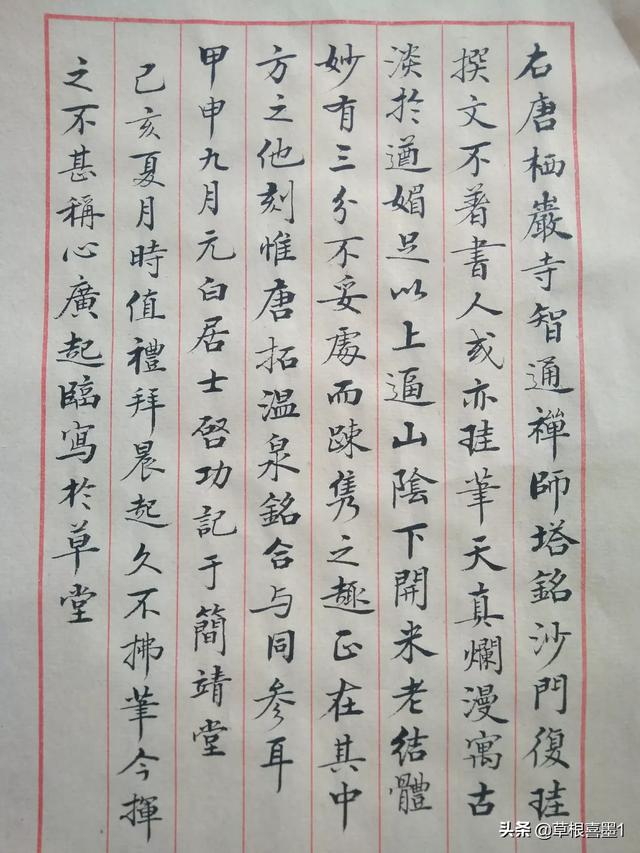 右唐栖巖寺智通禪師塔銘沙門復珪
撰文不著書人或亦珪筆天真爛漫寓古
淡於遒媚足以上逼山陰下開米老結體
妙有三分不妥處而踈雋之趣正在其中
方之他刻惟唐拓温泉銘合与同參耳
甲申九月元白居士啓功記于簡靖堂
己亥夏月時值禮拜晨起久不拂筆今揮
之不甚稱心廣起臨寫於草堂
头条 @草根喜墨1